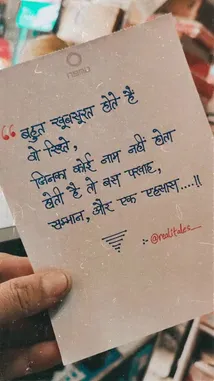 बहुत खूबसूरत होते हैं
वो रिश्ते,
जिनका कोई नाम नहीं होता
होती है तो बस परवाह,
सम्मान, और एक एहसास....!!
:- @realtales_